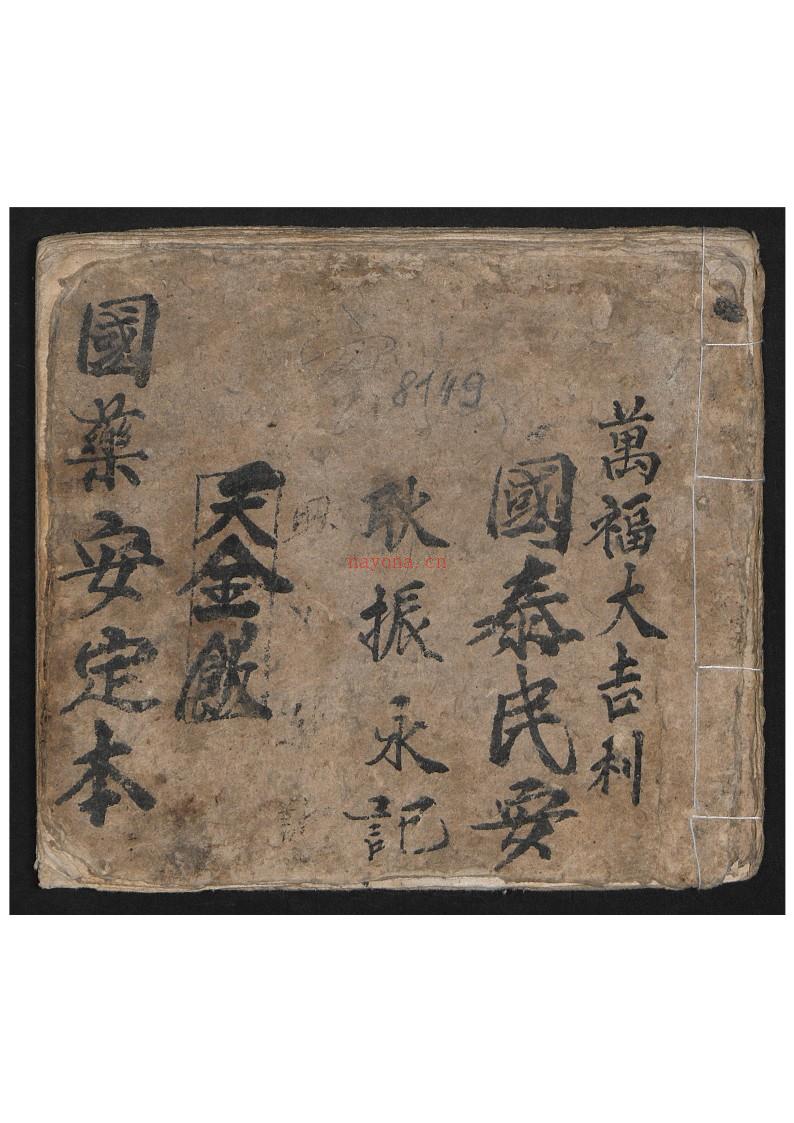 萬福大吉利
國泰民安
耿振永記
天金飯
國藥安定本
8149
nayona.cn